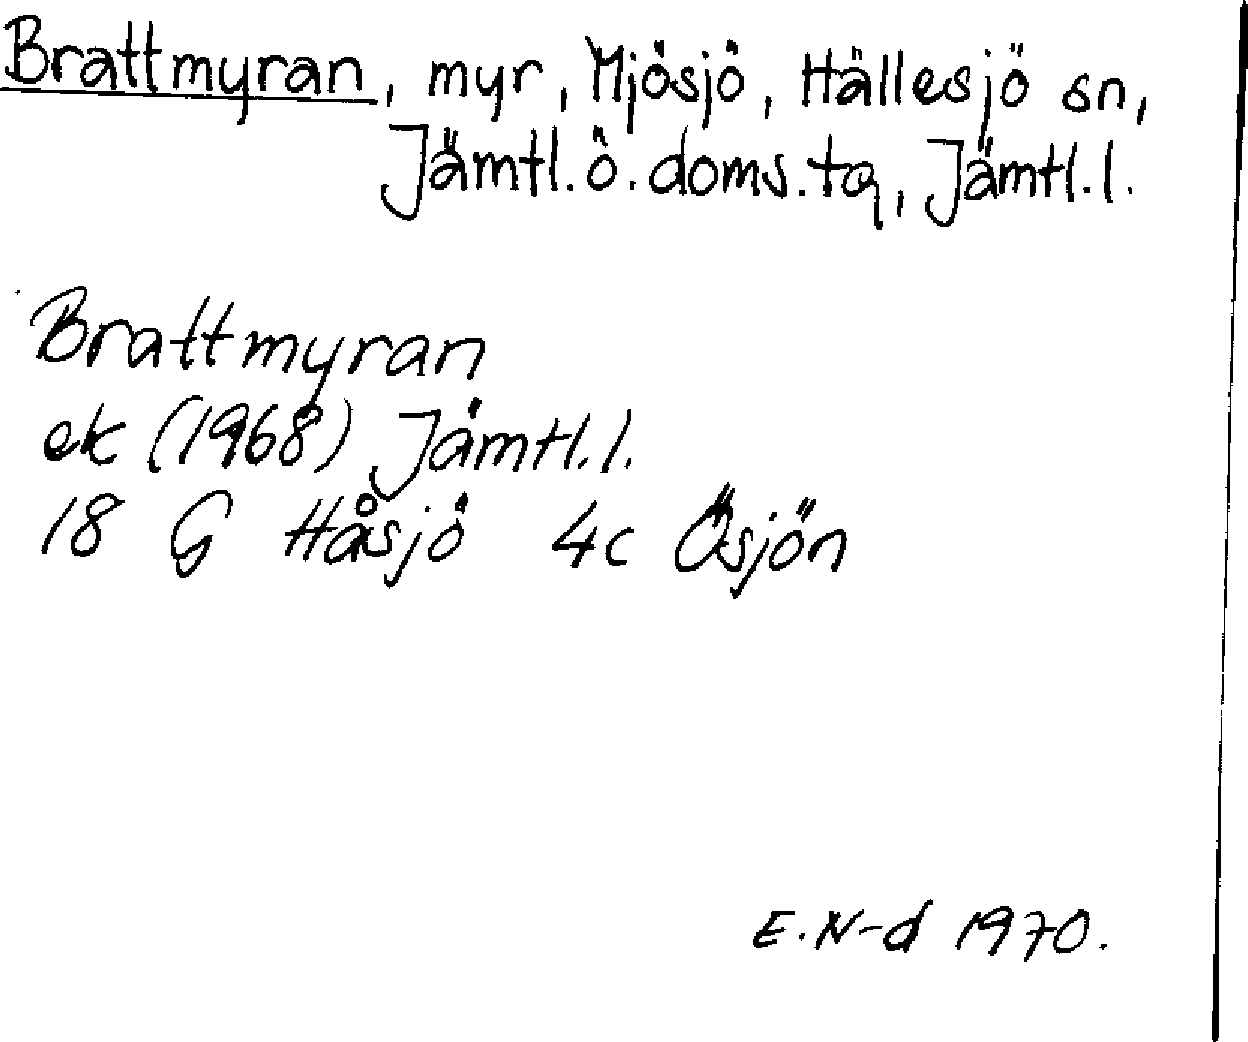 Brattmyran, myr, Mjösjö, Hällesjö sn,
Jämtl. ö. doms. tg, Jämtl. l.
Brattmyran
ek (1968) Jämtl. l.
18 G Håsjö 4c Ösjön
E. N-d 1970.